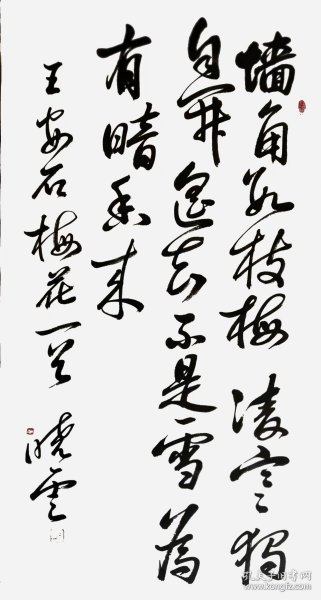 墙角数枝梅凌寒独
自开遥知不是雪为
有暗香来
王安石梅花一首 晓云
孔夫子旧书网
kongfz.com